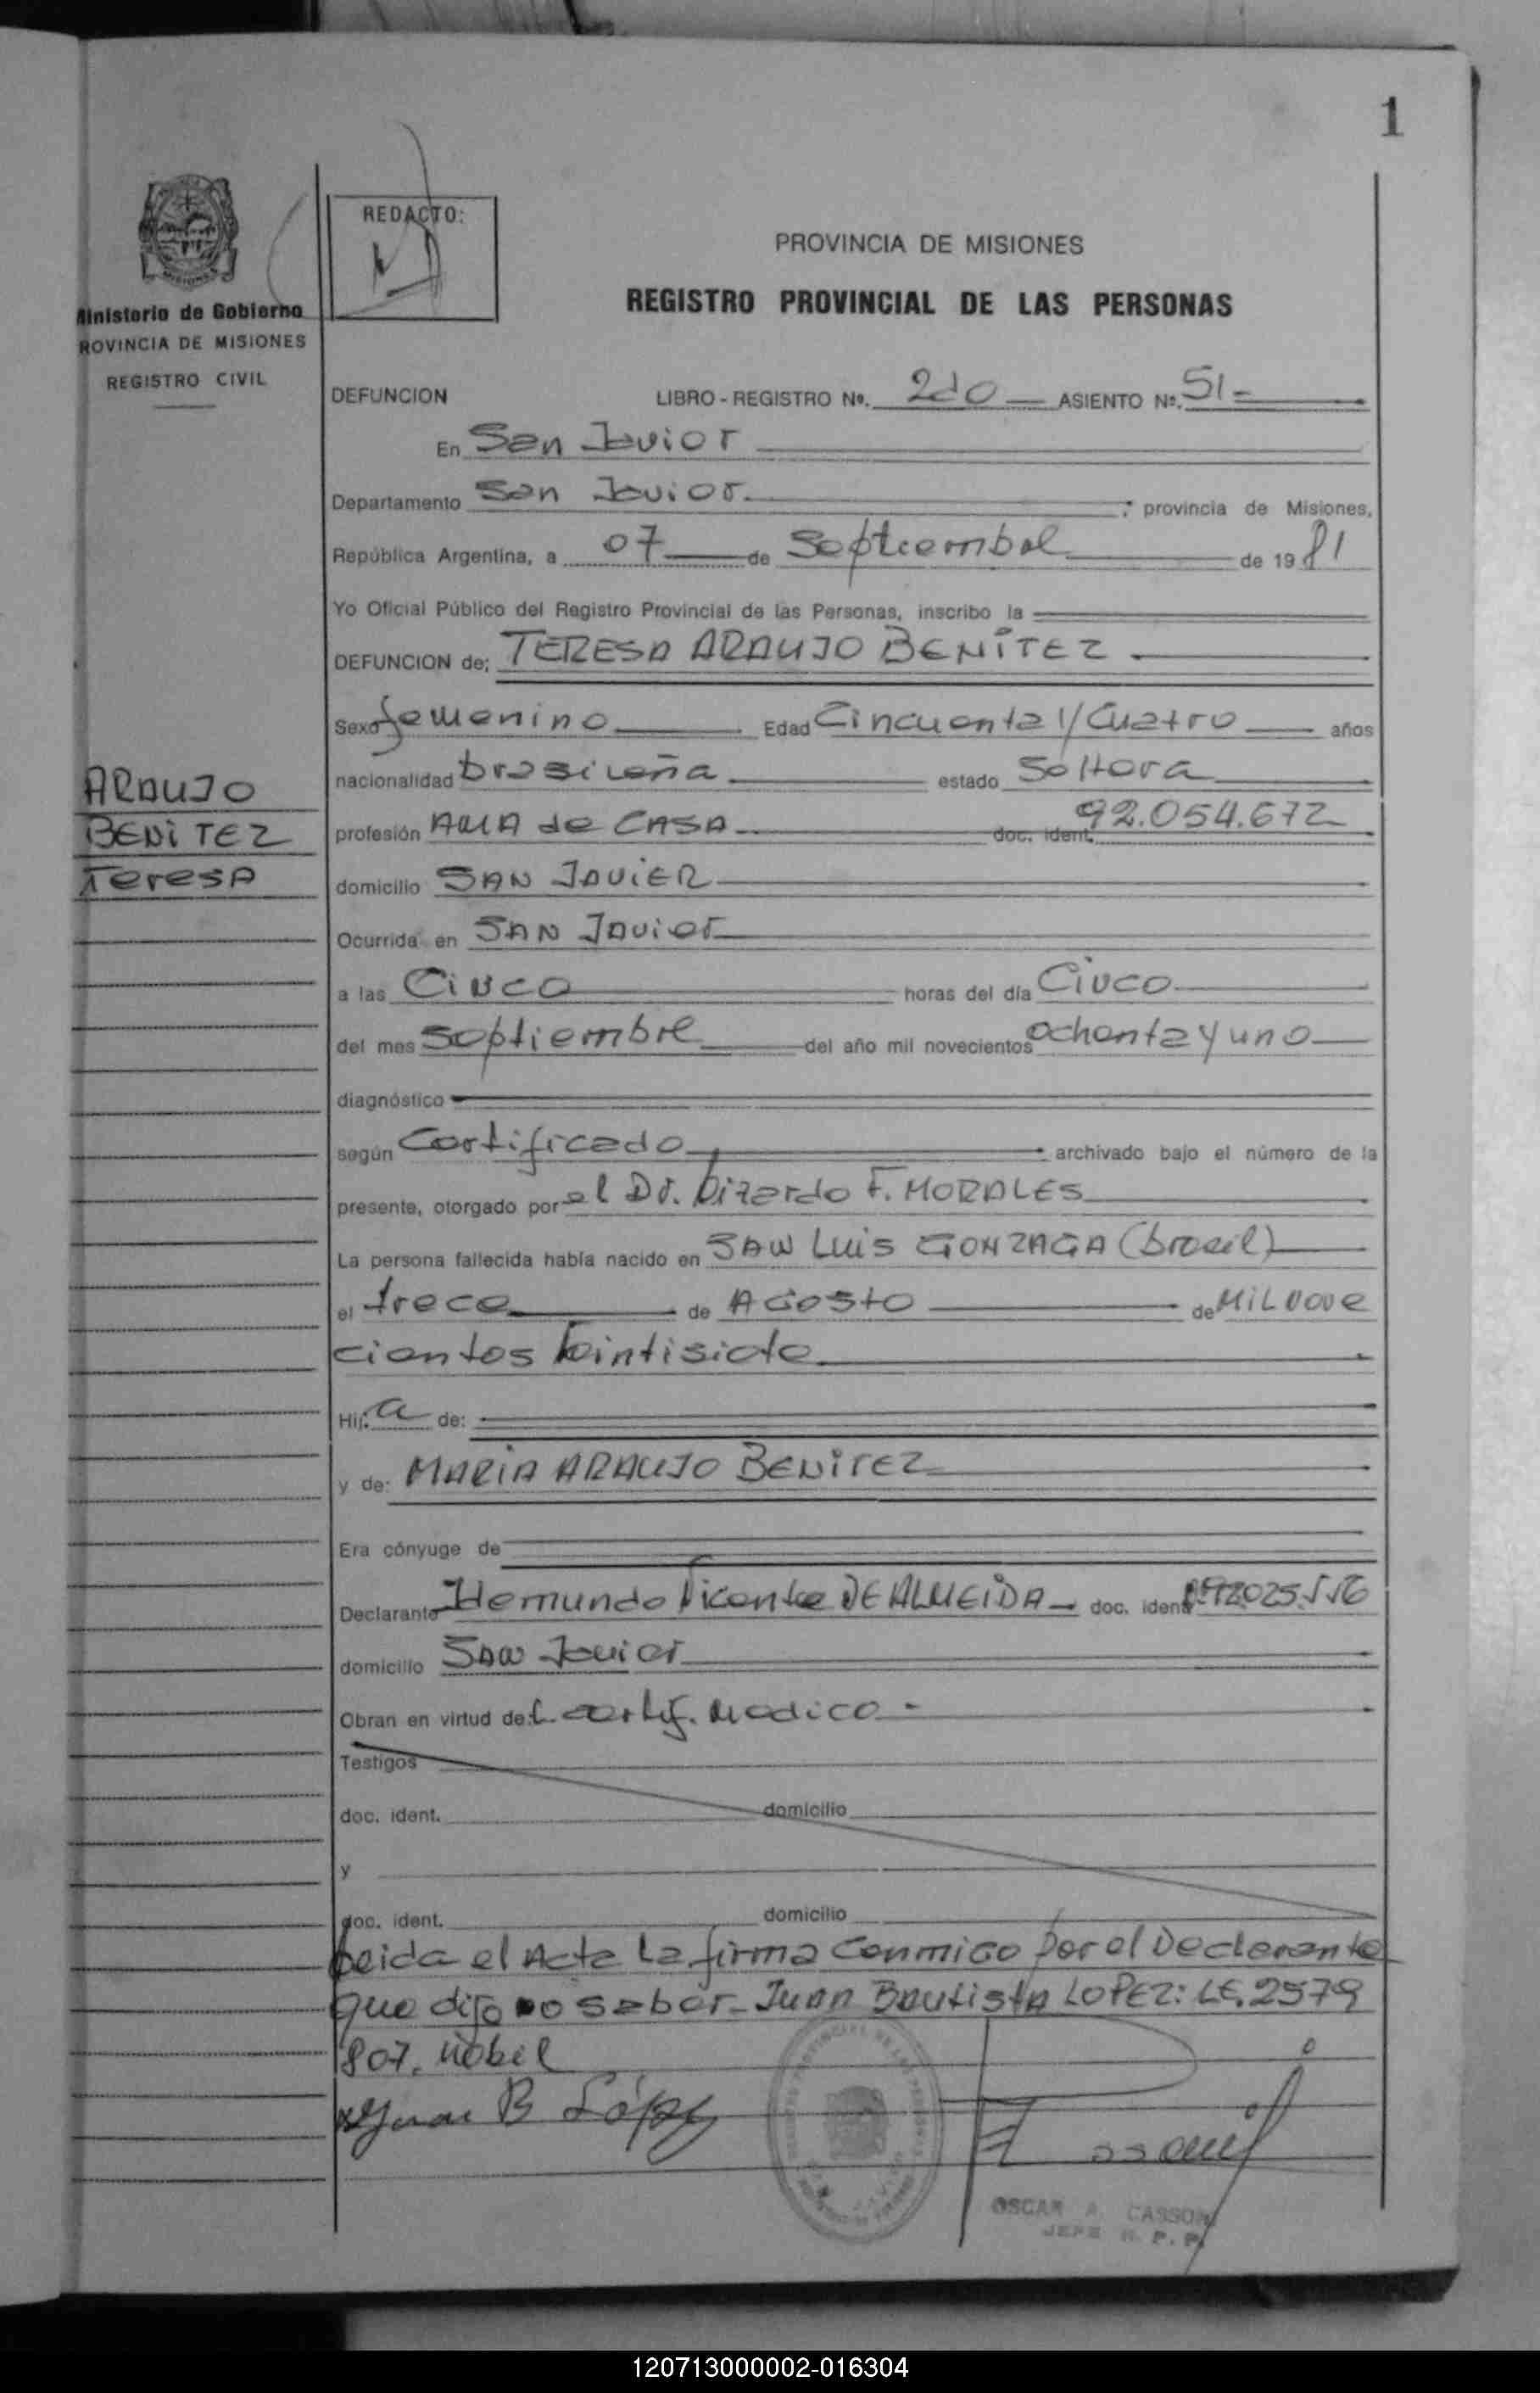 1
REDACTO:
PROVINCIA DE MISIONES
REGISTRO PROVINCIAL DE LAS PERSONAS
Ministerio de Gobierno
ROVINCIA DE MISIONES
REGISTRO CIVIL
DEFUNCION LIBRO - REGISTRO Nº. 2do ASIENTO Nº. 51
En San Javier
Departamento San Javier ; provincia de Misiones,
República Argentina, a 07 de Septiembre de 1981
Yo Oficial Público del Registro Provincial de las Personas, inscribo la
DEFUNCION de: TERESA ARAUJO BENITEZ
Sexo femenino Edad Cincuenta y Cuatro años
nacionalidad brasileña estado Soltera
ARAUJO
BENITEZ
Teresa
profesión AMA de CASA doc. ident. 92.054.672
domicilio SAN JAVIER
Ocurrida en SAN Javier
a las Cinco horas del día Cinco
del mes Septiembre del año mil novecientos ochenta y uno
diagnóstico
según Certificado archivado bajo el número de la
presente, otorgado por el Dr. Lizardo F. MORALES
La persona fallecida había nacido en SAN LUIS GONZAGA (brasil)
el trece de AGOSTO de MIL nove
cientos veintisiete
Hij a de:
y de: MARIA ARAUJO BENITEZ
Era cónyuge de
Declarante Vicente DE ALMEIDA doc. ident.
domicilio San Javier
Obran en virtud de: L certif. Medico
Testigos
doc. ident. domicilio
y
doc. ident. domicilio
Leida el Acta La firma Conmigo Por el Declarante
que dijo no saber- Juan Bautista LOPEZ: LE. 2579
807.
Juan B López
OSCAR A. CASSON
JEFE R. P. P.
120713000002-016304